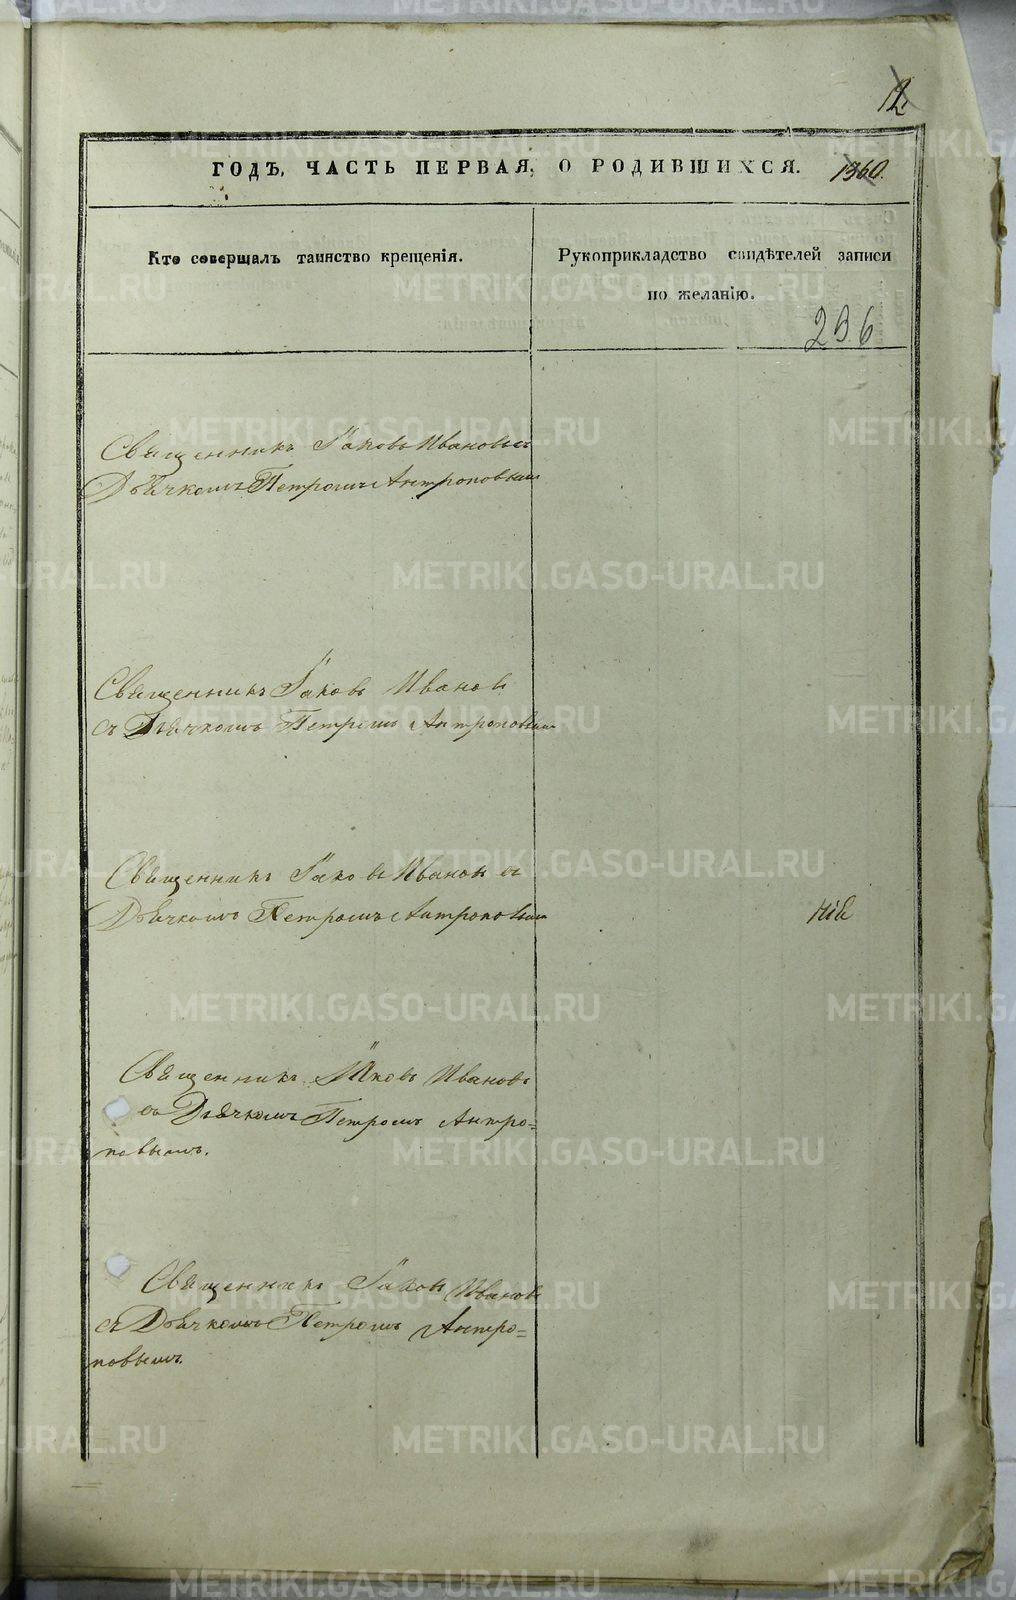 12
ГОДЪ, ЧАСТЬ ПЕРВАЯ, О РОДИВШИХСЯ. 1360.
Кто совершалъ таинство крещенія.
Рукоприкладство свидѣтелей записи
по желанію.
236
Священникъ Іаковъ Ивановъ съ
Дьячкомъ Петромъ Антроповымъ
Священникъ Іаковъ Ивановъ
съ Дьячкомъ Петромъ Антроповымъ
Священникъ Іаковъ Ивановъ съ
Дьячкомъ Петромъ Антроповымъ
Священникъ Іаковъ Ивановъ
съ Дьячкомъ Петромъ Антро=
повымъ.
Священникъ Іаковъ Ивановъ
съ Дьячкомъ Петромъ Антро=
повымъ.
METRIKI.GASO-URAL.RU